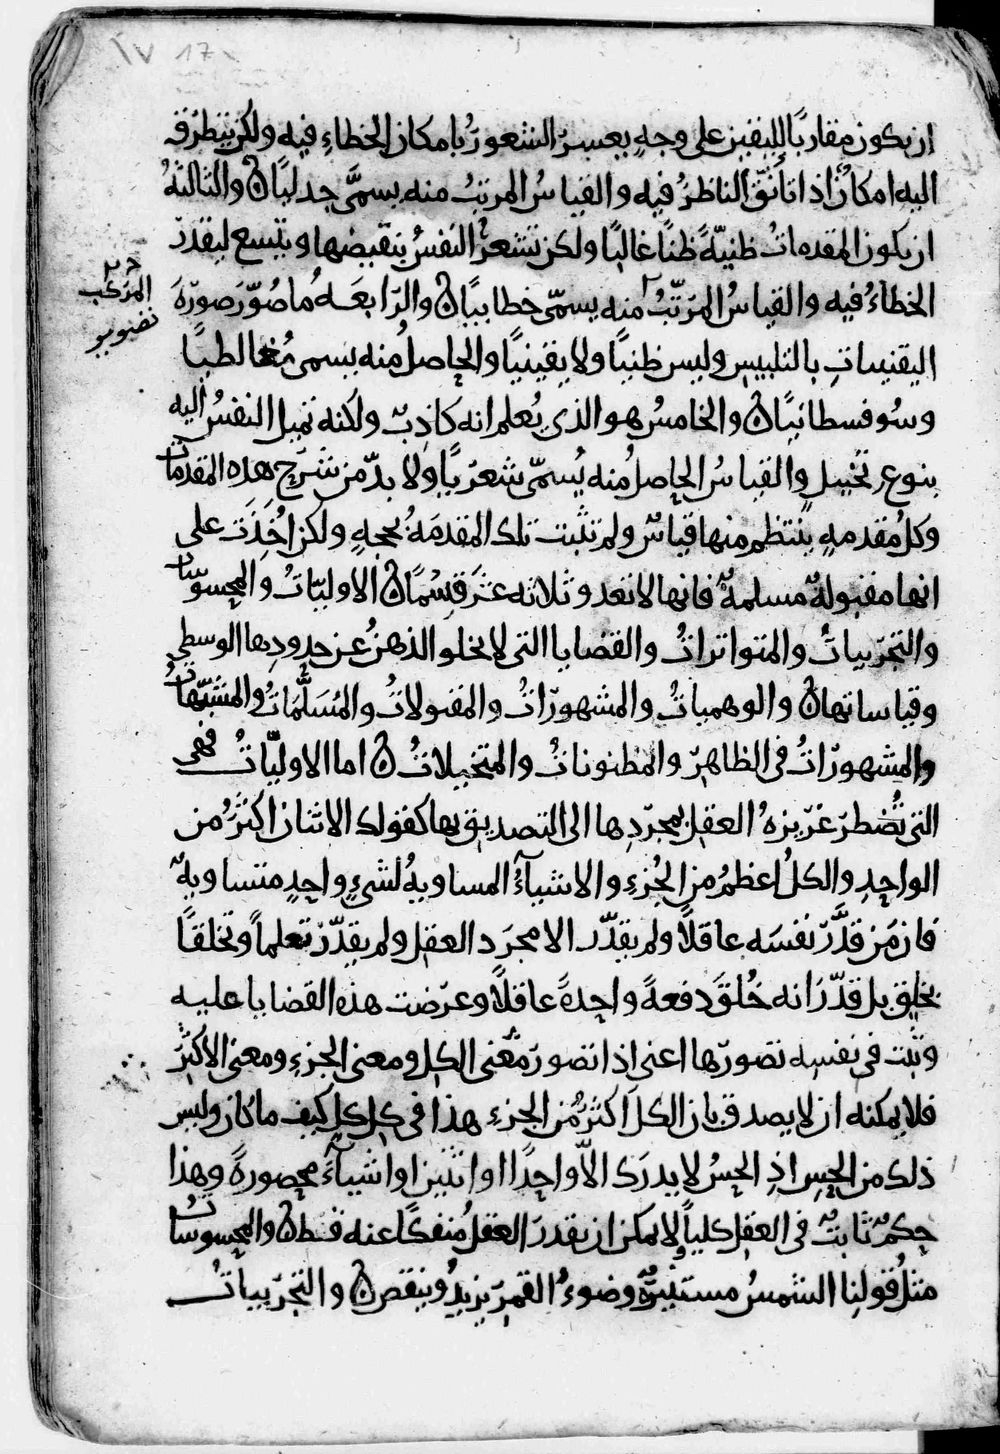 ١٧ 17
ان يكون مقاربًا لليقين على وجهٍ يعسر الشعورُ بامكان الخطاء فيه ولكن يتطرق
اليه امكانٌ اذا تأنّق الناظرُ فيه والقياسُ المرتبُ منه يسمَّى جدليًا ن والثالثةُ
ان يكون المقدمات ظنيّةً ظنًا غالبًا ولكن تشعرُ النفسُ بنقيضها ويتسع لتقدير
الخطاءُ فيه والقياسُ المرَتّبُ منه يسمّى خطابيًا ن والرّابعَةُ ما صُوّر صورَةَ
اليقينيات بالتلبيس وليس ظنيًا ولا يقينيًا والحاصلُ منه يسمى مُغالطيًا
المركب
تصوير
وسُوفسطائيًا ن والخامسُ هو الذي يُعلم انه كاذبٌ ولكنه تميل النفسُ اليه
بنوع تخييلٍ والقياسُ الحاصلُ منه يُسمّى شعريًا ولا بدّ من شرح هذه المقدمات
وكلُ مُقدمهٍ ينتظم منها قياسٌ ولم تثبت تلك المقدمَةُ بحجهٍ ولكن اُخِذَت على
انها مقبولةٌ مسلمةٌ فانها لا تعدو ثلاثه عشَر قِسْمًا ن الاوليّاتُ والمحسوسات
والتجرّبياتُ والمتواتراتُ والقضايا التى لا يخلو الذهنُ عن حدودِها الوسطى
وقياساتها ن والوهمياتُ والمشهوراتُ والمقبولاتُ والمُسَلَّمَاتُ والمشبّهاتُ
والمشهوراتُ فى الظاهر والمظنوناتُ والمتخيلاتُ ن اما الاوليّاتُ فهى
التى تُضطر غريزهُ العقلِ بمجرّدِها الى التصديق بها كقولك الاثنان اكثرُ من
الواحِدِ والكلُ اعظمُ من الجُزءِ والاشيآءُ المساويهُ لشىءٍ واحِدٍ متساويهٌ
فان مَن قدَّر نفسَه عاقلًا ولم يقدّر الا مجرّد العقل ولم يقدّر تعلماً وتخلقًا
بخلق بل قدّر انه خُلقَ دفعةً واحِدةً عاقلًا وعرّضت هذه القضايا عليه
وثبت فى نفسِه تصورّها اعنى اذا تصورّ معْنى الكل ومعنى الجزءِ ومعنى الاكثر
فلا يمكنه ان لا يصدق بان الكلَ اكثرُ من الجزء هذا فى كل كلٍ كيف ما كان وليس
ذلك من الحِس اذِ الحِسُ لا يدرَك الاّ واحِدًا او اثنين او اشيآءَ محصورةً وهذا
حِكمٌ ثابتٌ فى العقل كلياً ولا يمكن ان يقدرَ العقلُ مُنفكًا عنه قط ن والمحسوساتُ
مثلُ قولِنا الشمسُ مستنيرّةٌ وضوءُ القمرِ يزيدُ وينقص ن والتجرّبياتُ